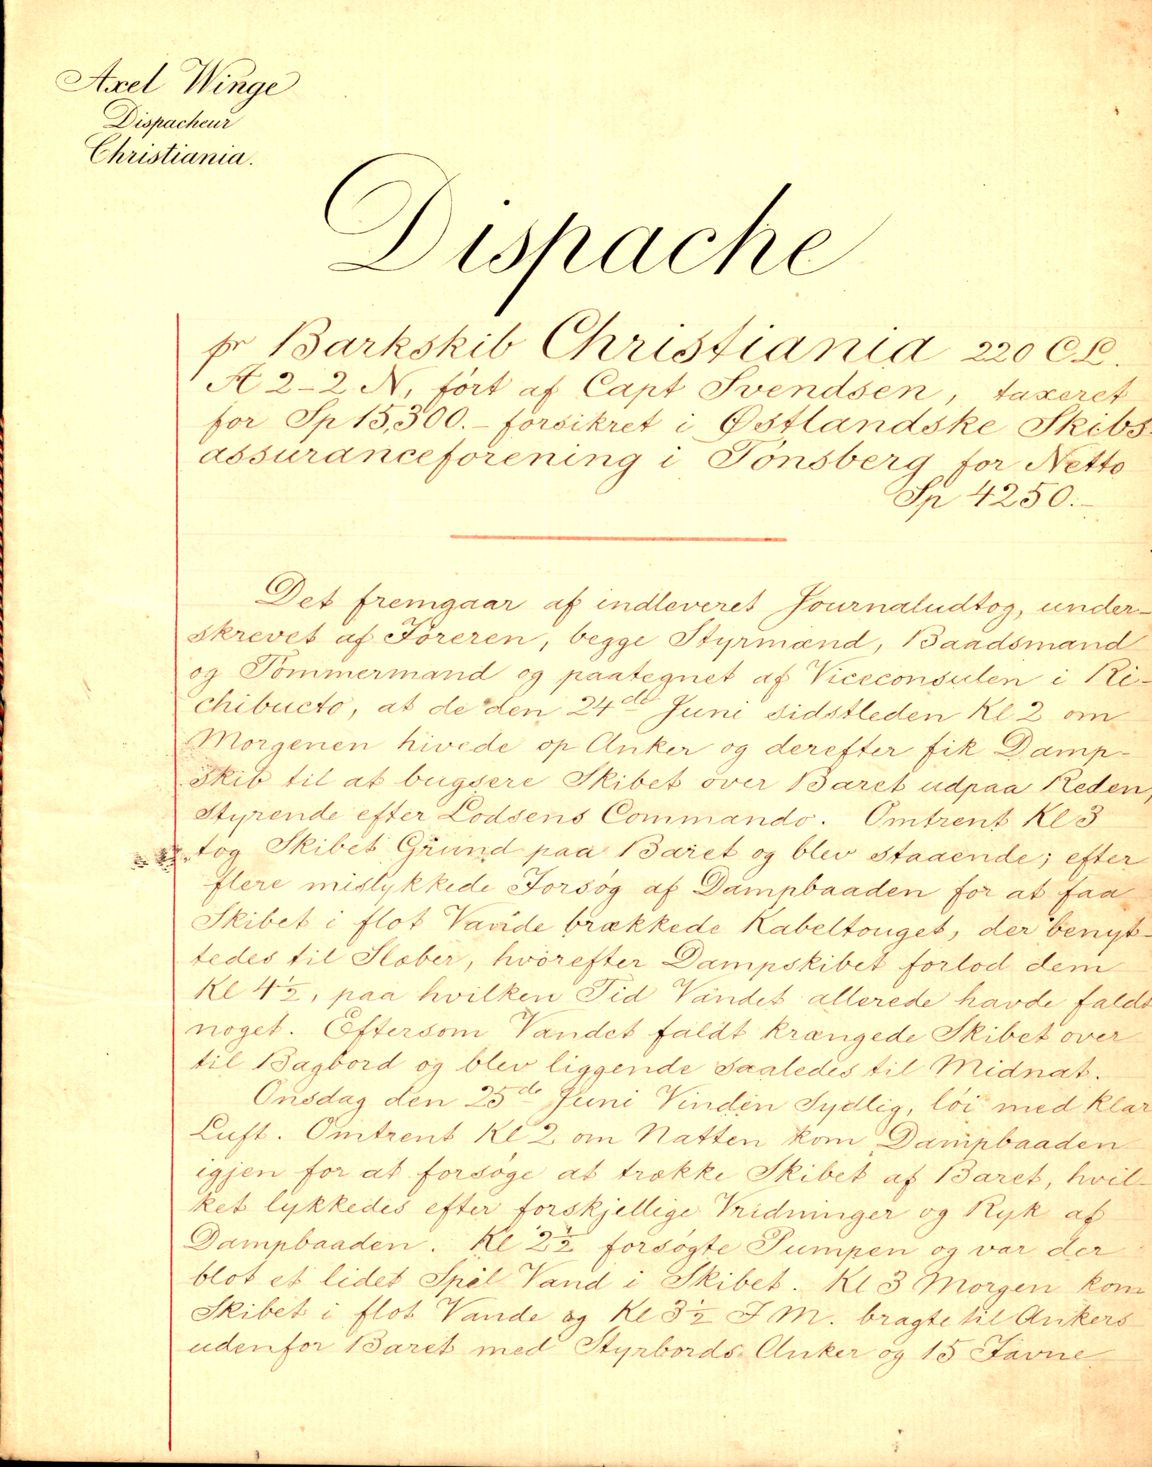 Axel Winge
Dispacheur
Christiania.
Dispache
pr Barkskib Christiania 220 C.L.
A 2-2 N, ført af Capt Svendsen, taxeret
for Sp 15,300.- forsikret i Østlandske Skibs-
assuranceforening i Tønsberg for Netto
Sp 4250.-
Det fremgaar af indleveret Journaludtog, under-
skrevet af Føreren, begge Styrmænd, Baadsmand
og Tømmermand og paategnet af Viceconsulen i Ri-
chibucto, at de den 24de Juni sidstleden Kl 2 om
Morgenen hivede op Anker og derefter fik Damp-
skib til at bugsere Skibet over Baret udpaa Reden,
styrende efter Lodsens Commando. Omtrent Kl 3
tog Skibet Grund paa Baret og blev staaende; efter
flere mislykkede Forsøg af Dampbaaden for at faa
Skibet i flot Vande brækkede Kabeltouget, der benyt-
tedes til Slæber, hvorefter Dampskibet forlod dem
Kl 4½, paa hvilken Tid Vandet allerede havde faldt
noget. Eftersom Vandet faldt krængede Skibet over
til Bagbord og blev liggende saaledes til Midnat.
Onsdag den 25de Juni Vinden Sydlig, løi med klar
Luft. Omtrent Kl 2 om Natten kom Dampbaaden
igjen for at forsøge at trække Skibet af Baret, hvil-
ket lykkedes efter forskjellige Vridninger og Ryk af
Dampbaaden. Kl 2½ forsøgte Pumpen og var der
blot et lidet Spil Vand i Skibet. Kl 3 Morgen kom
Skibet i flot Vande og Kl 3½ F M. bragte til Ankers
udenfor Baret med Styrbords Anker og 15 Favne